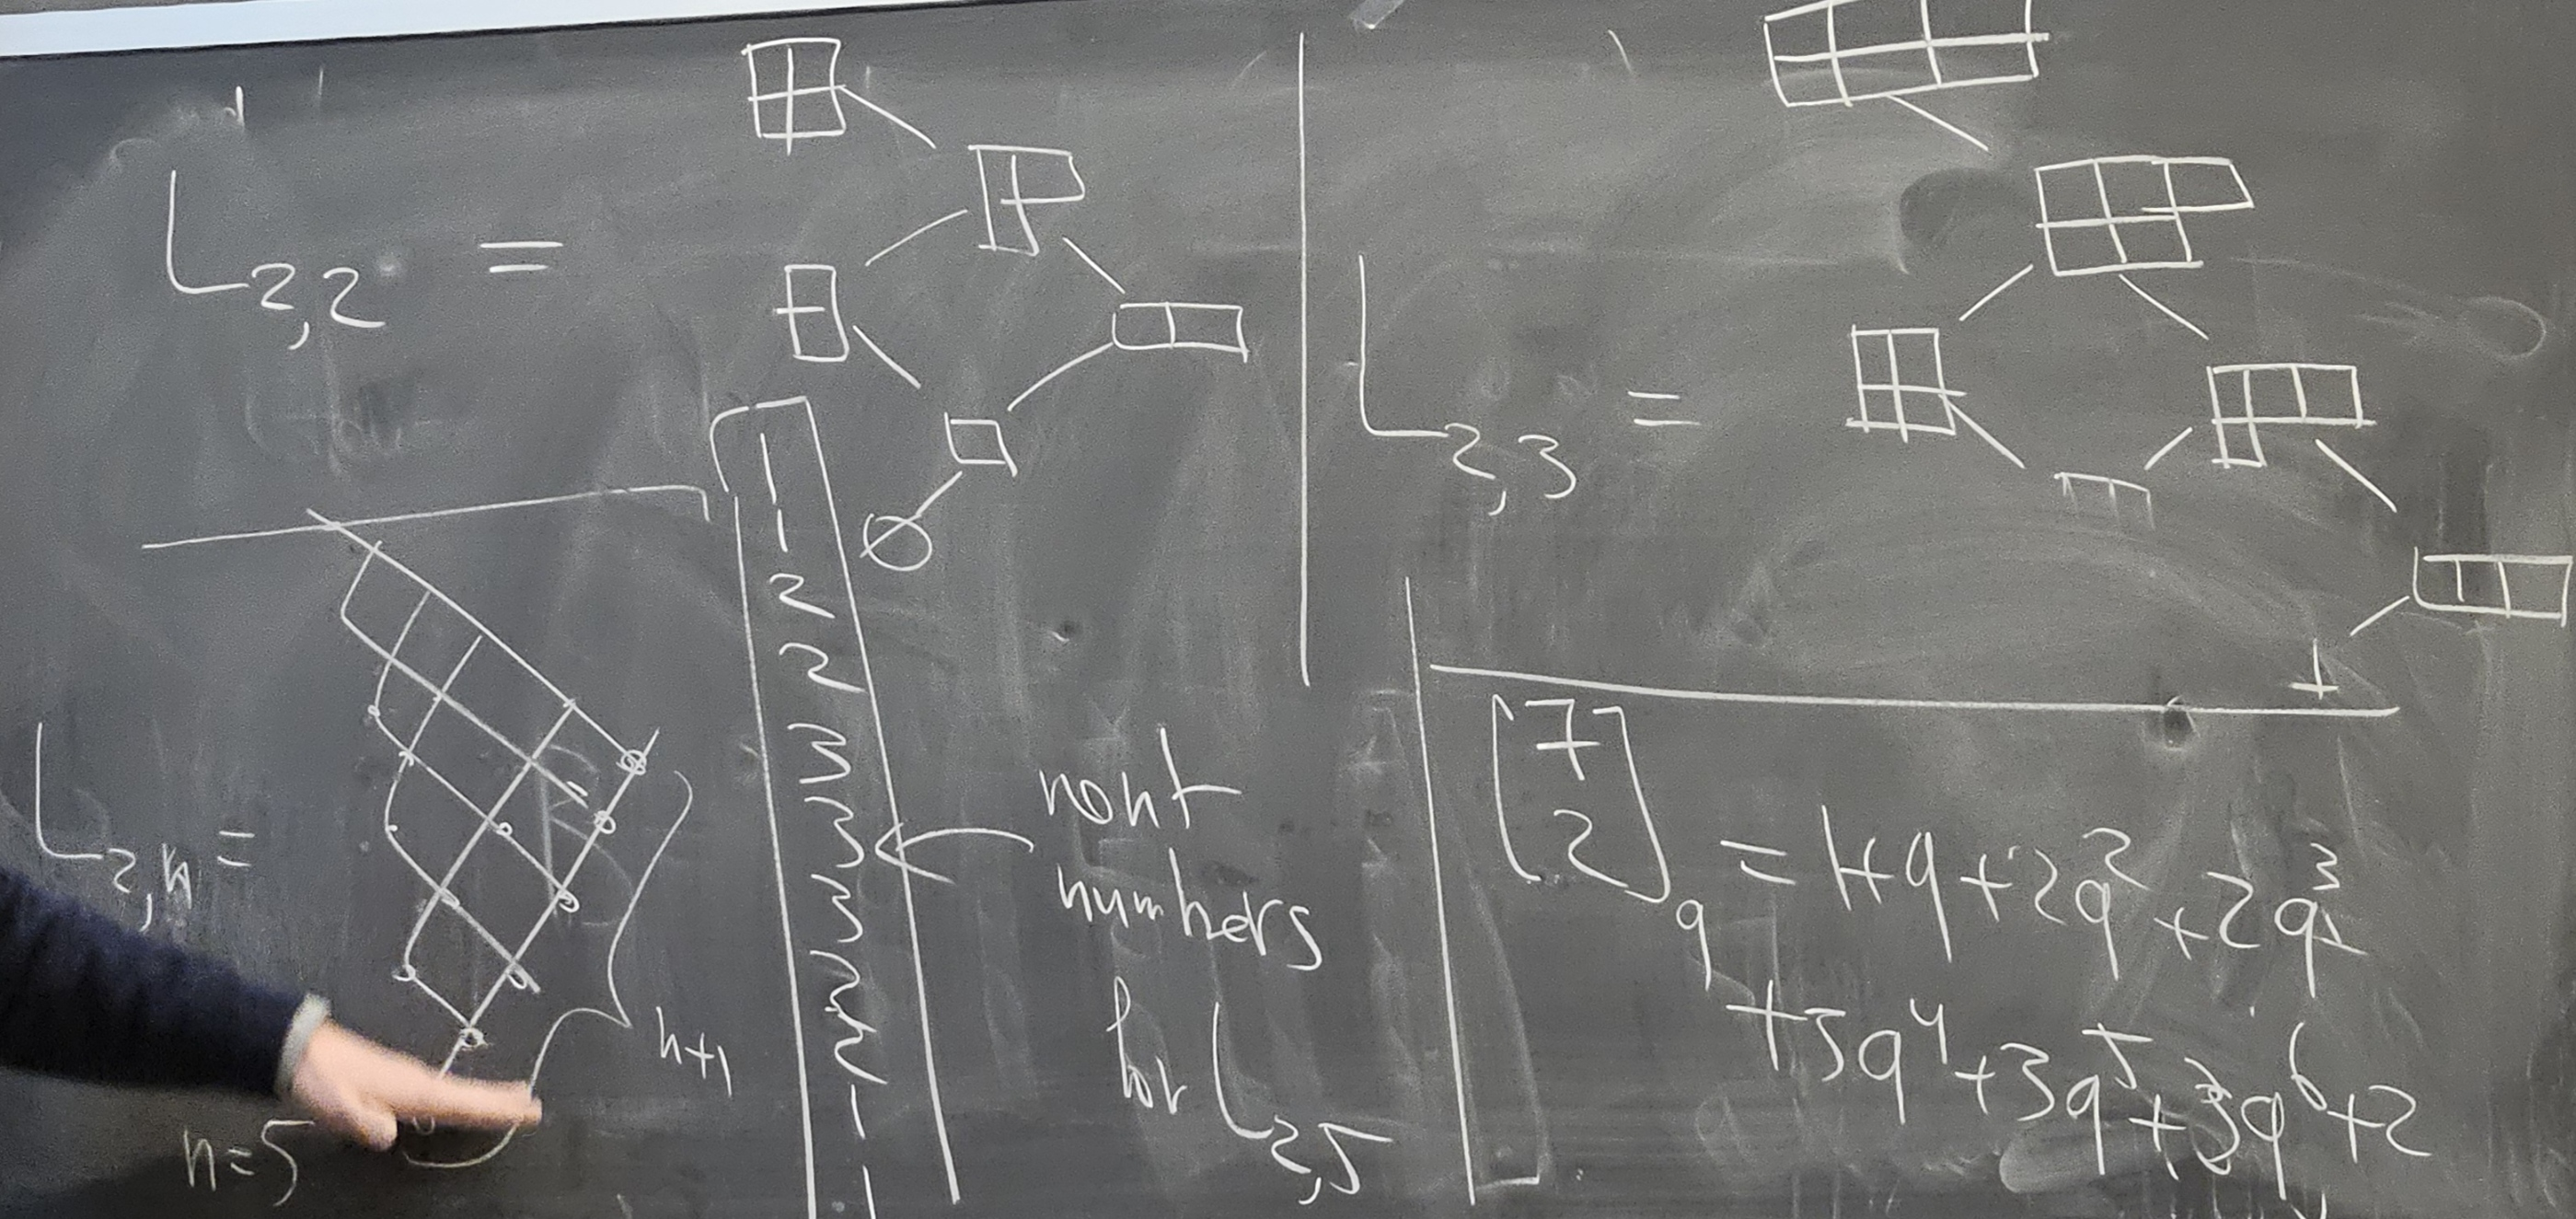 L_{2,2} =
∅
L_{2,3} =
L_{2,n} =
n+1
n=5
1
1
2
2
3
3
3
2
2
1
1
rank
numbers
for L_{2,5}
[7 2]_q = 1+q+2q^2+2q^3
+3q^4+3q^5+3q^6+2